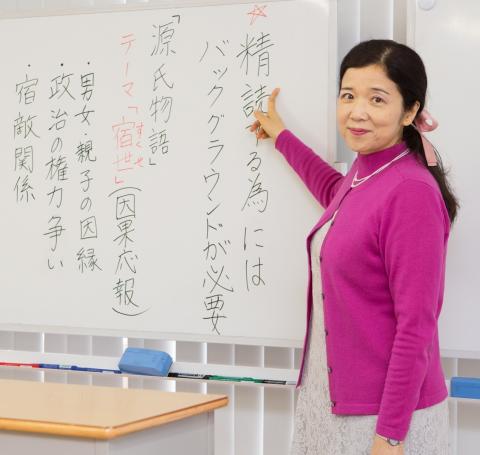 精読する為には
バックグラウンドが必要
「源氏物語」
テーマ「宿世」(因果応報)
すくせ
・男女・親子の因縁
・政治の権力争い
・宿敵関係